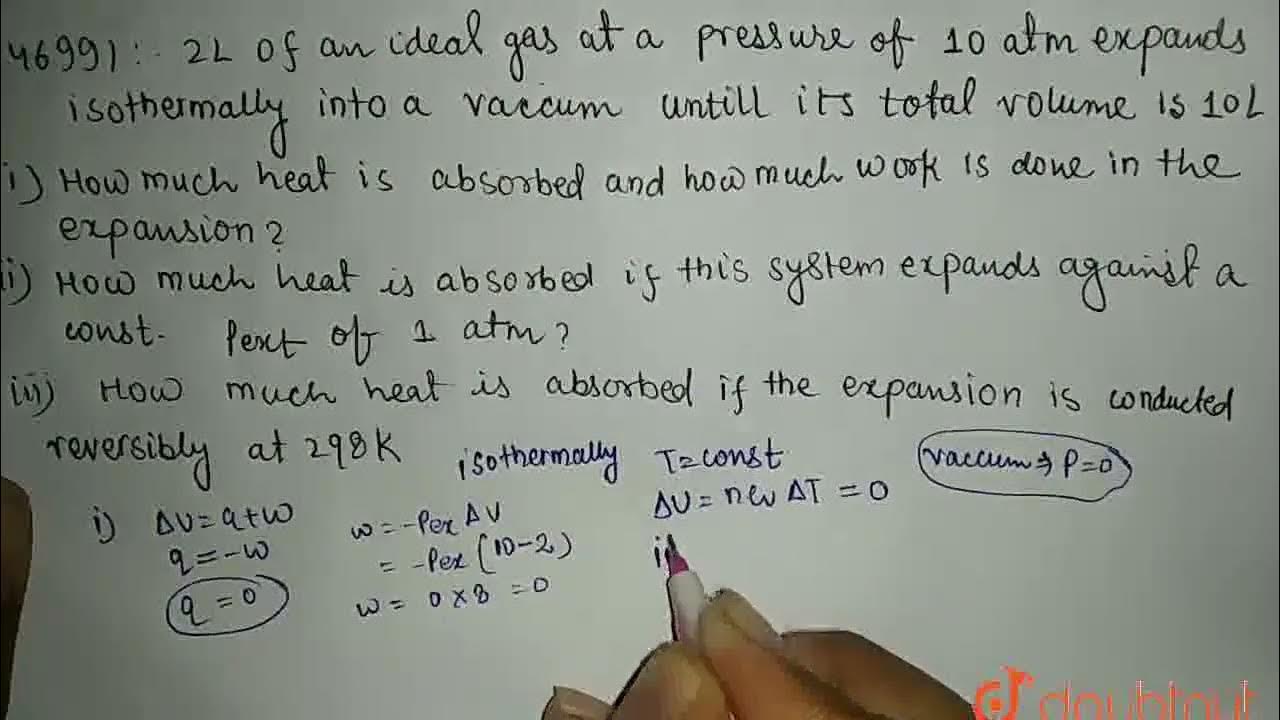 46991:- 2L of an ideal gas at a pressure of 10 atm expands
isothermally into a vaccum untill its total volume is 10L
i) How much heat is absorbed and how much work is done in the
expansion?
ii) How much heat is absorbed if this system expands against a
const. Pext of 1 atm?
iii) How much heat is absorbed if the expansion is conducted
reversibly at 298K
isothermally T=const
vaccum ⇒ P=0
i) ΔU=q+w
q=-w
q=0
w=-Pex ΔV
= -Pex (10-2)
w= 0×8 =0
ΔU= nCv ΔT =0
doubtnut